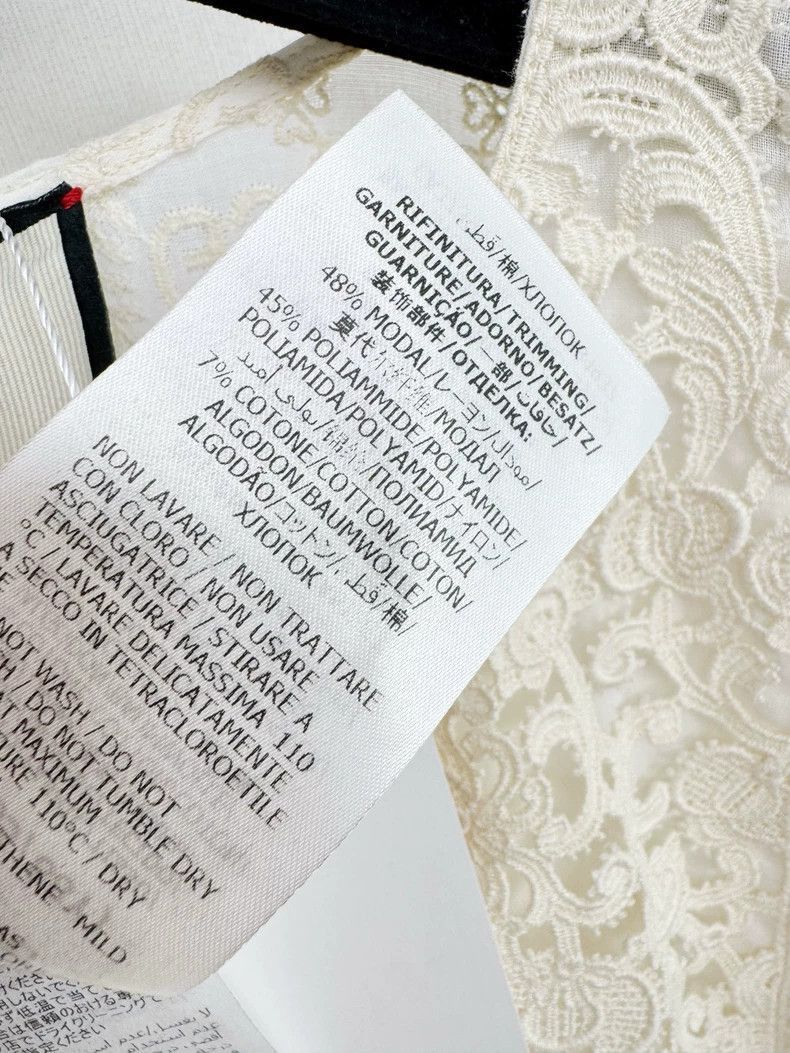 قطن/棉/ХЛОПОК
RIFINITURA/TRIMMING/
GARNITURE/ADORNO/BESATZ/
GUARNIÇÃO/一部/حافات/
装饰部件/ОТДЕЛКА:
48% MODAL/レーヨン/مودال/
莫代尔纤维/МОДАЛ
45% POLIAMMIDE/POLYAMIDE/
POLIAMIDA/POLYAMID/ナイロン/
بولي أميد/锦纶/ПОЛИАМИД
7% COTONE/COTTON/COTON/
ALGODON/BAUMWOLLE/
ALGODÃO/コットン/قطن/棉/
ХЛОПОК
NON LAVARE / NON TRATTARE
CON CLORO / NON USARE
ASCIUGATRICE / STIRARE A
TEMPERATURA MASSIMA 110
°C / LAVARE DELICATAMENTE
A SECCO IN TETRACLOROETILE
NOT WASH / DO NOT
/ DO NOT TUMBLE DRY
MAXIMUM
110°C / DRY
MILD